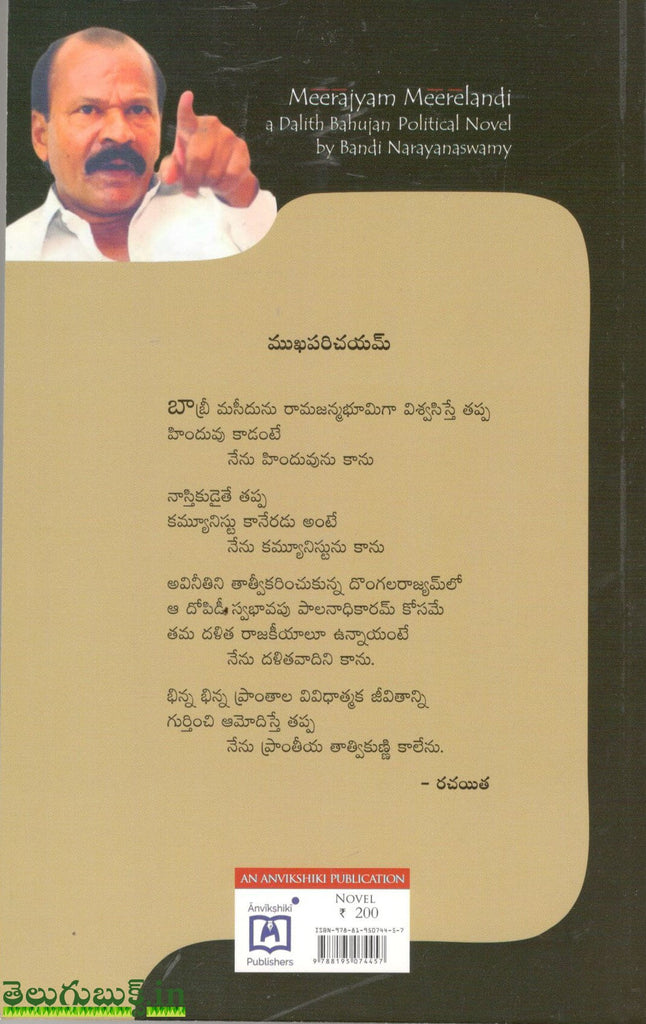 Meerajyam Meerelandi
a Dalith Bahujan Political Novel
by Bandi Narayanaswamy
ముఖపరిచయమ్
బాబ్రీ మసీదును రామజన్మభూమిగా విశ్వసిస్తే తప్ప
హిందువు కాడంటే
నేను హిందువును కాను
నాస్తికుడైతే తప్ప
కమ్యూనిస్టు కానేరడు అంటే
నేను కమ్యూనిస్టును కాను
అవినీతిని తాత్వీకరించుకున్న దొంగలరాజ్యమ్‌లో
ఆ దోపిడీ స్వభావపు పాలనాధికారమ్ కోసమే
తమ దళిత రాజకీయాలూ ఉన్నాయంటే
నేను దళితవాదిని కాను.
భిన్న భిన్న ప్రాంతాల వివిధాత్మక జీవితాన్ని
గుర్తించి ఆమోదిస్తే తప్ప
నేను ప్రాంతీయ తాత్వికుణ్ణి కాలేను.
– రచయిత
AN ANVIKSHIKI PUBLICATION
Ānvīkṣhikī
Publishers
NOVEL
₹ 200
ISBN-978-81-950744-5-7
9 788195 074457
తెలుగుబుక్.in